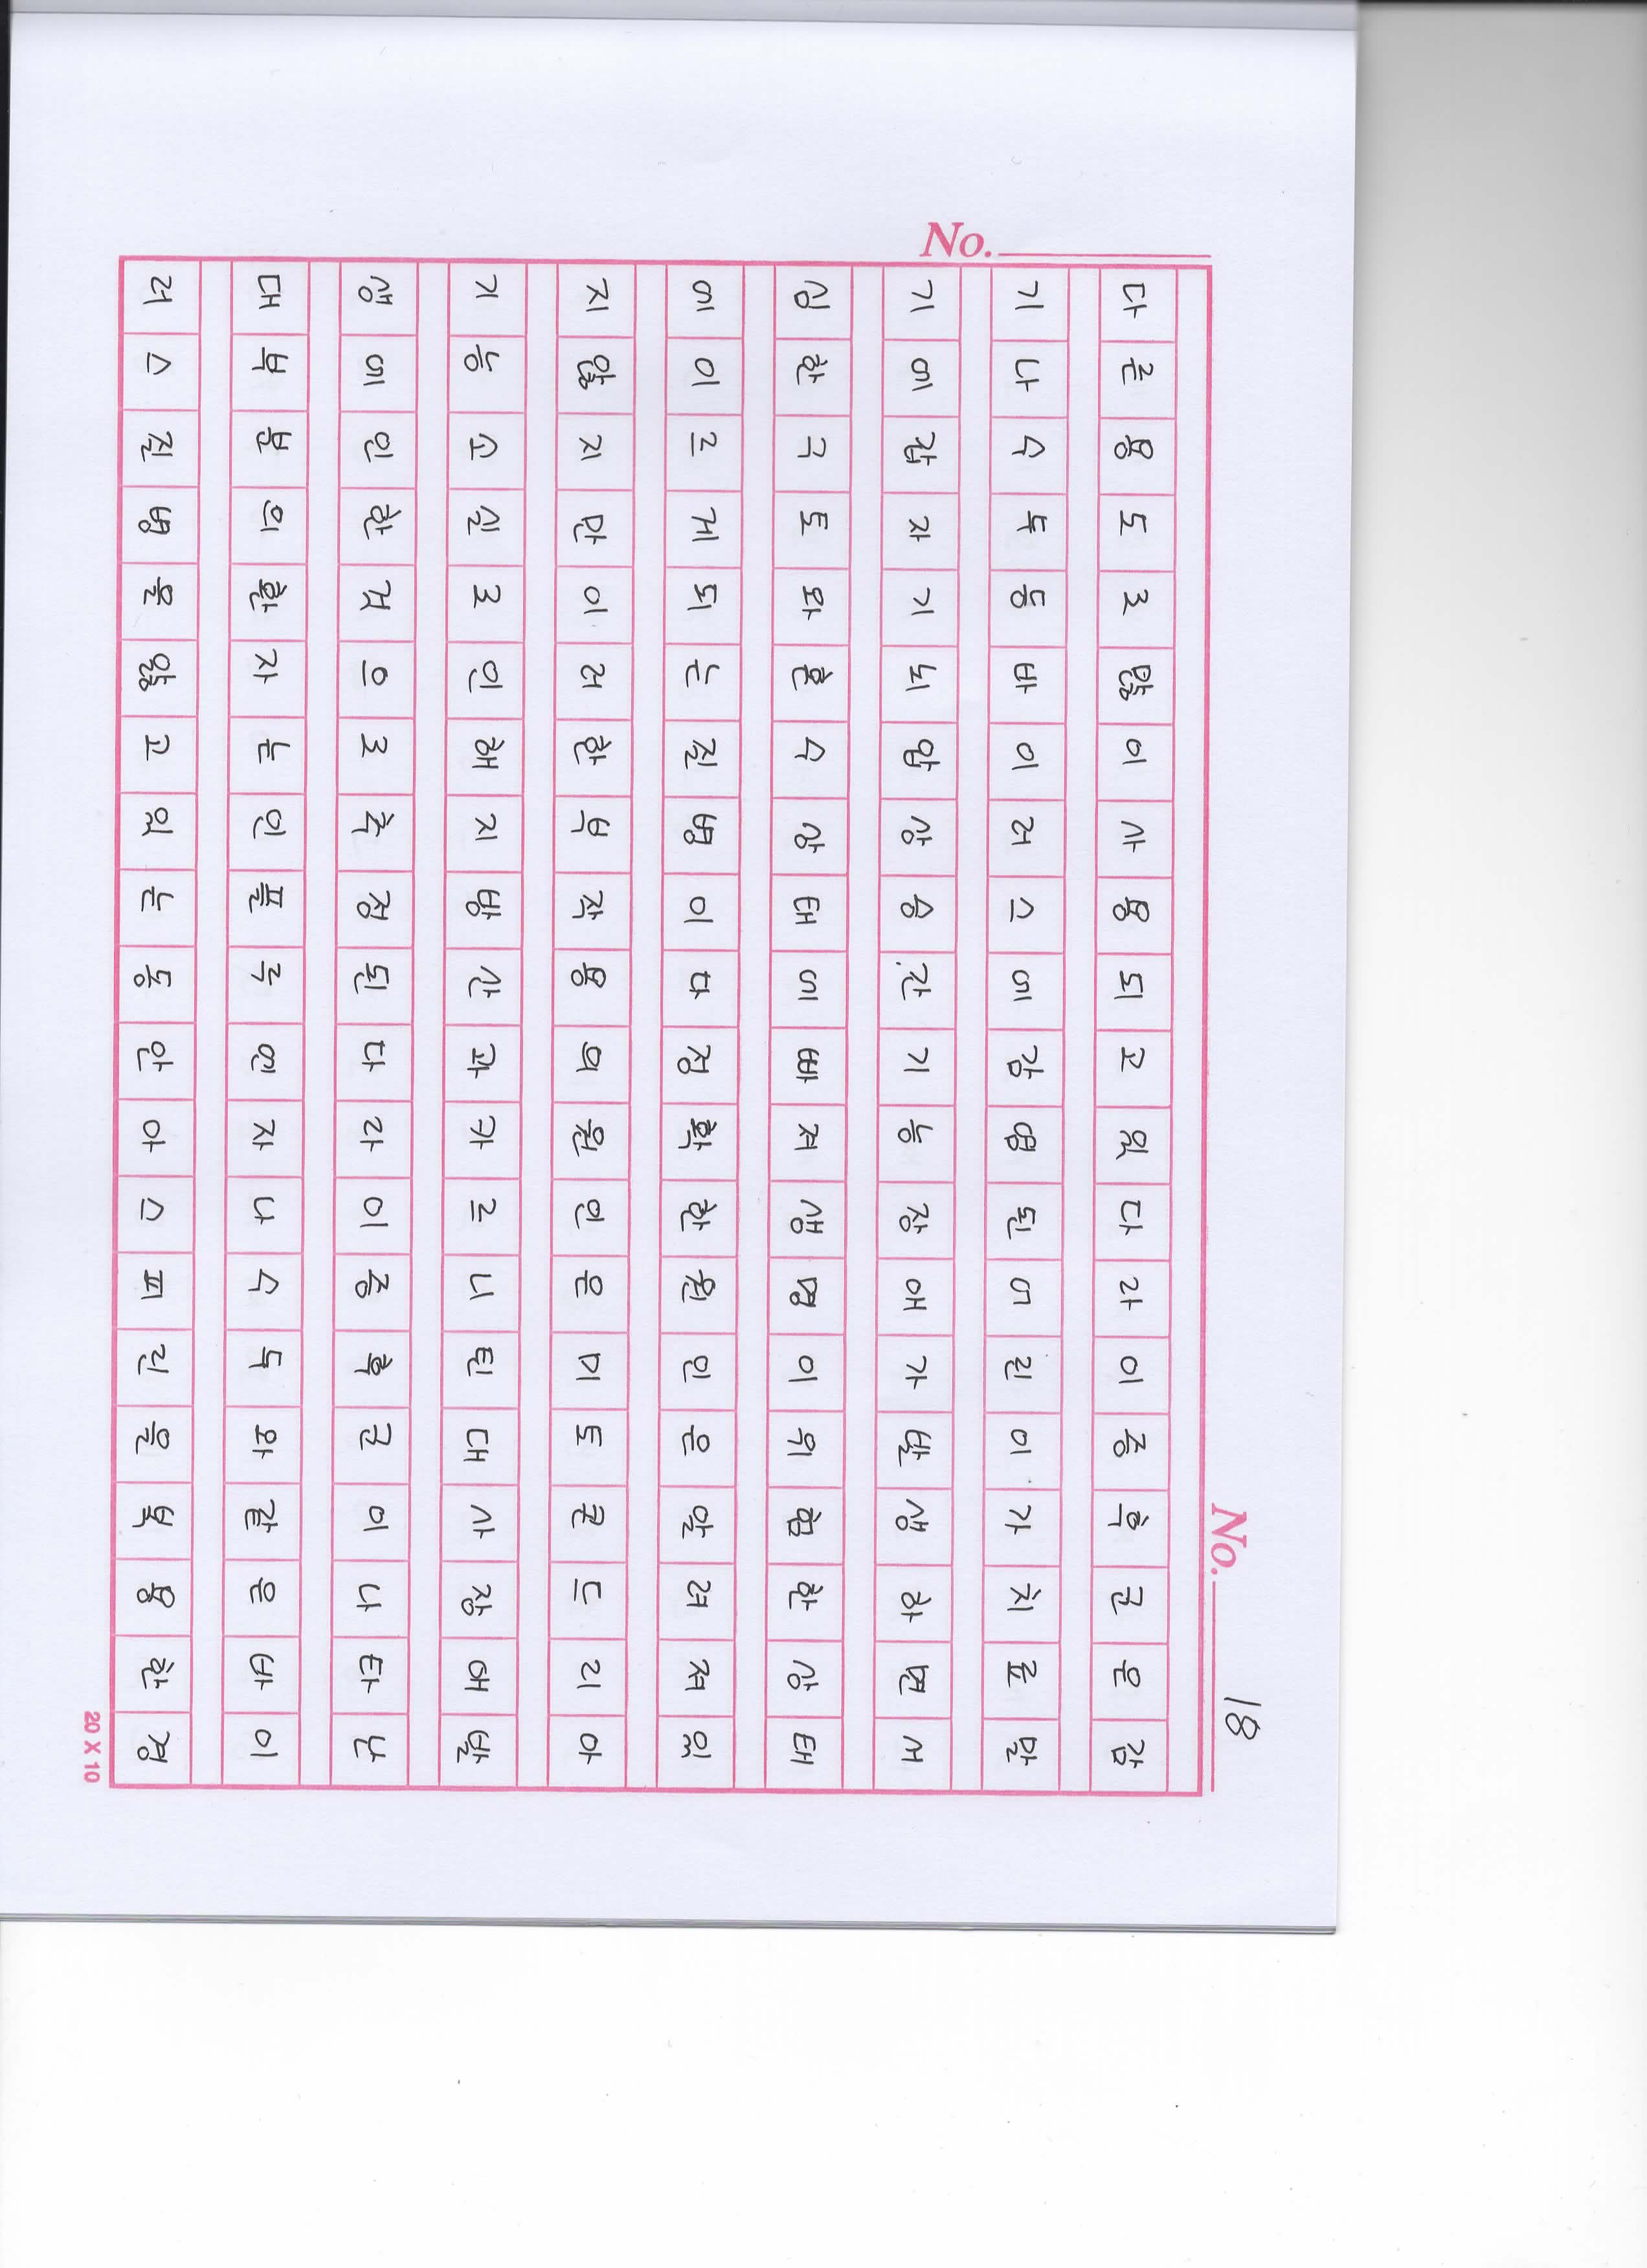 No. 18
No.
다른용도로많이사용되고있다라이증후군은감
기나수두등바이러스에감염된어린이가치료말
기에갑자기뇌압상승간기능장애가발생하면서
심한구토와혼수상태에빠져생명이위험한상태
에이르게되는질병이다정확한원인은알려져있
지않지만이러한부작용의원인은미토콘드리아
기능소실로인해지방산과카르니틴대사장애발
생에인한것으로추정된다라이증후군이나타난
대부분의환자는인플루엔자나수두와같은바이
러스질병을앓고있는동안아스피린을복용한경
20 X 10